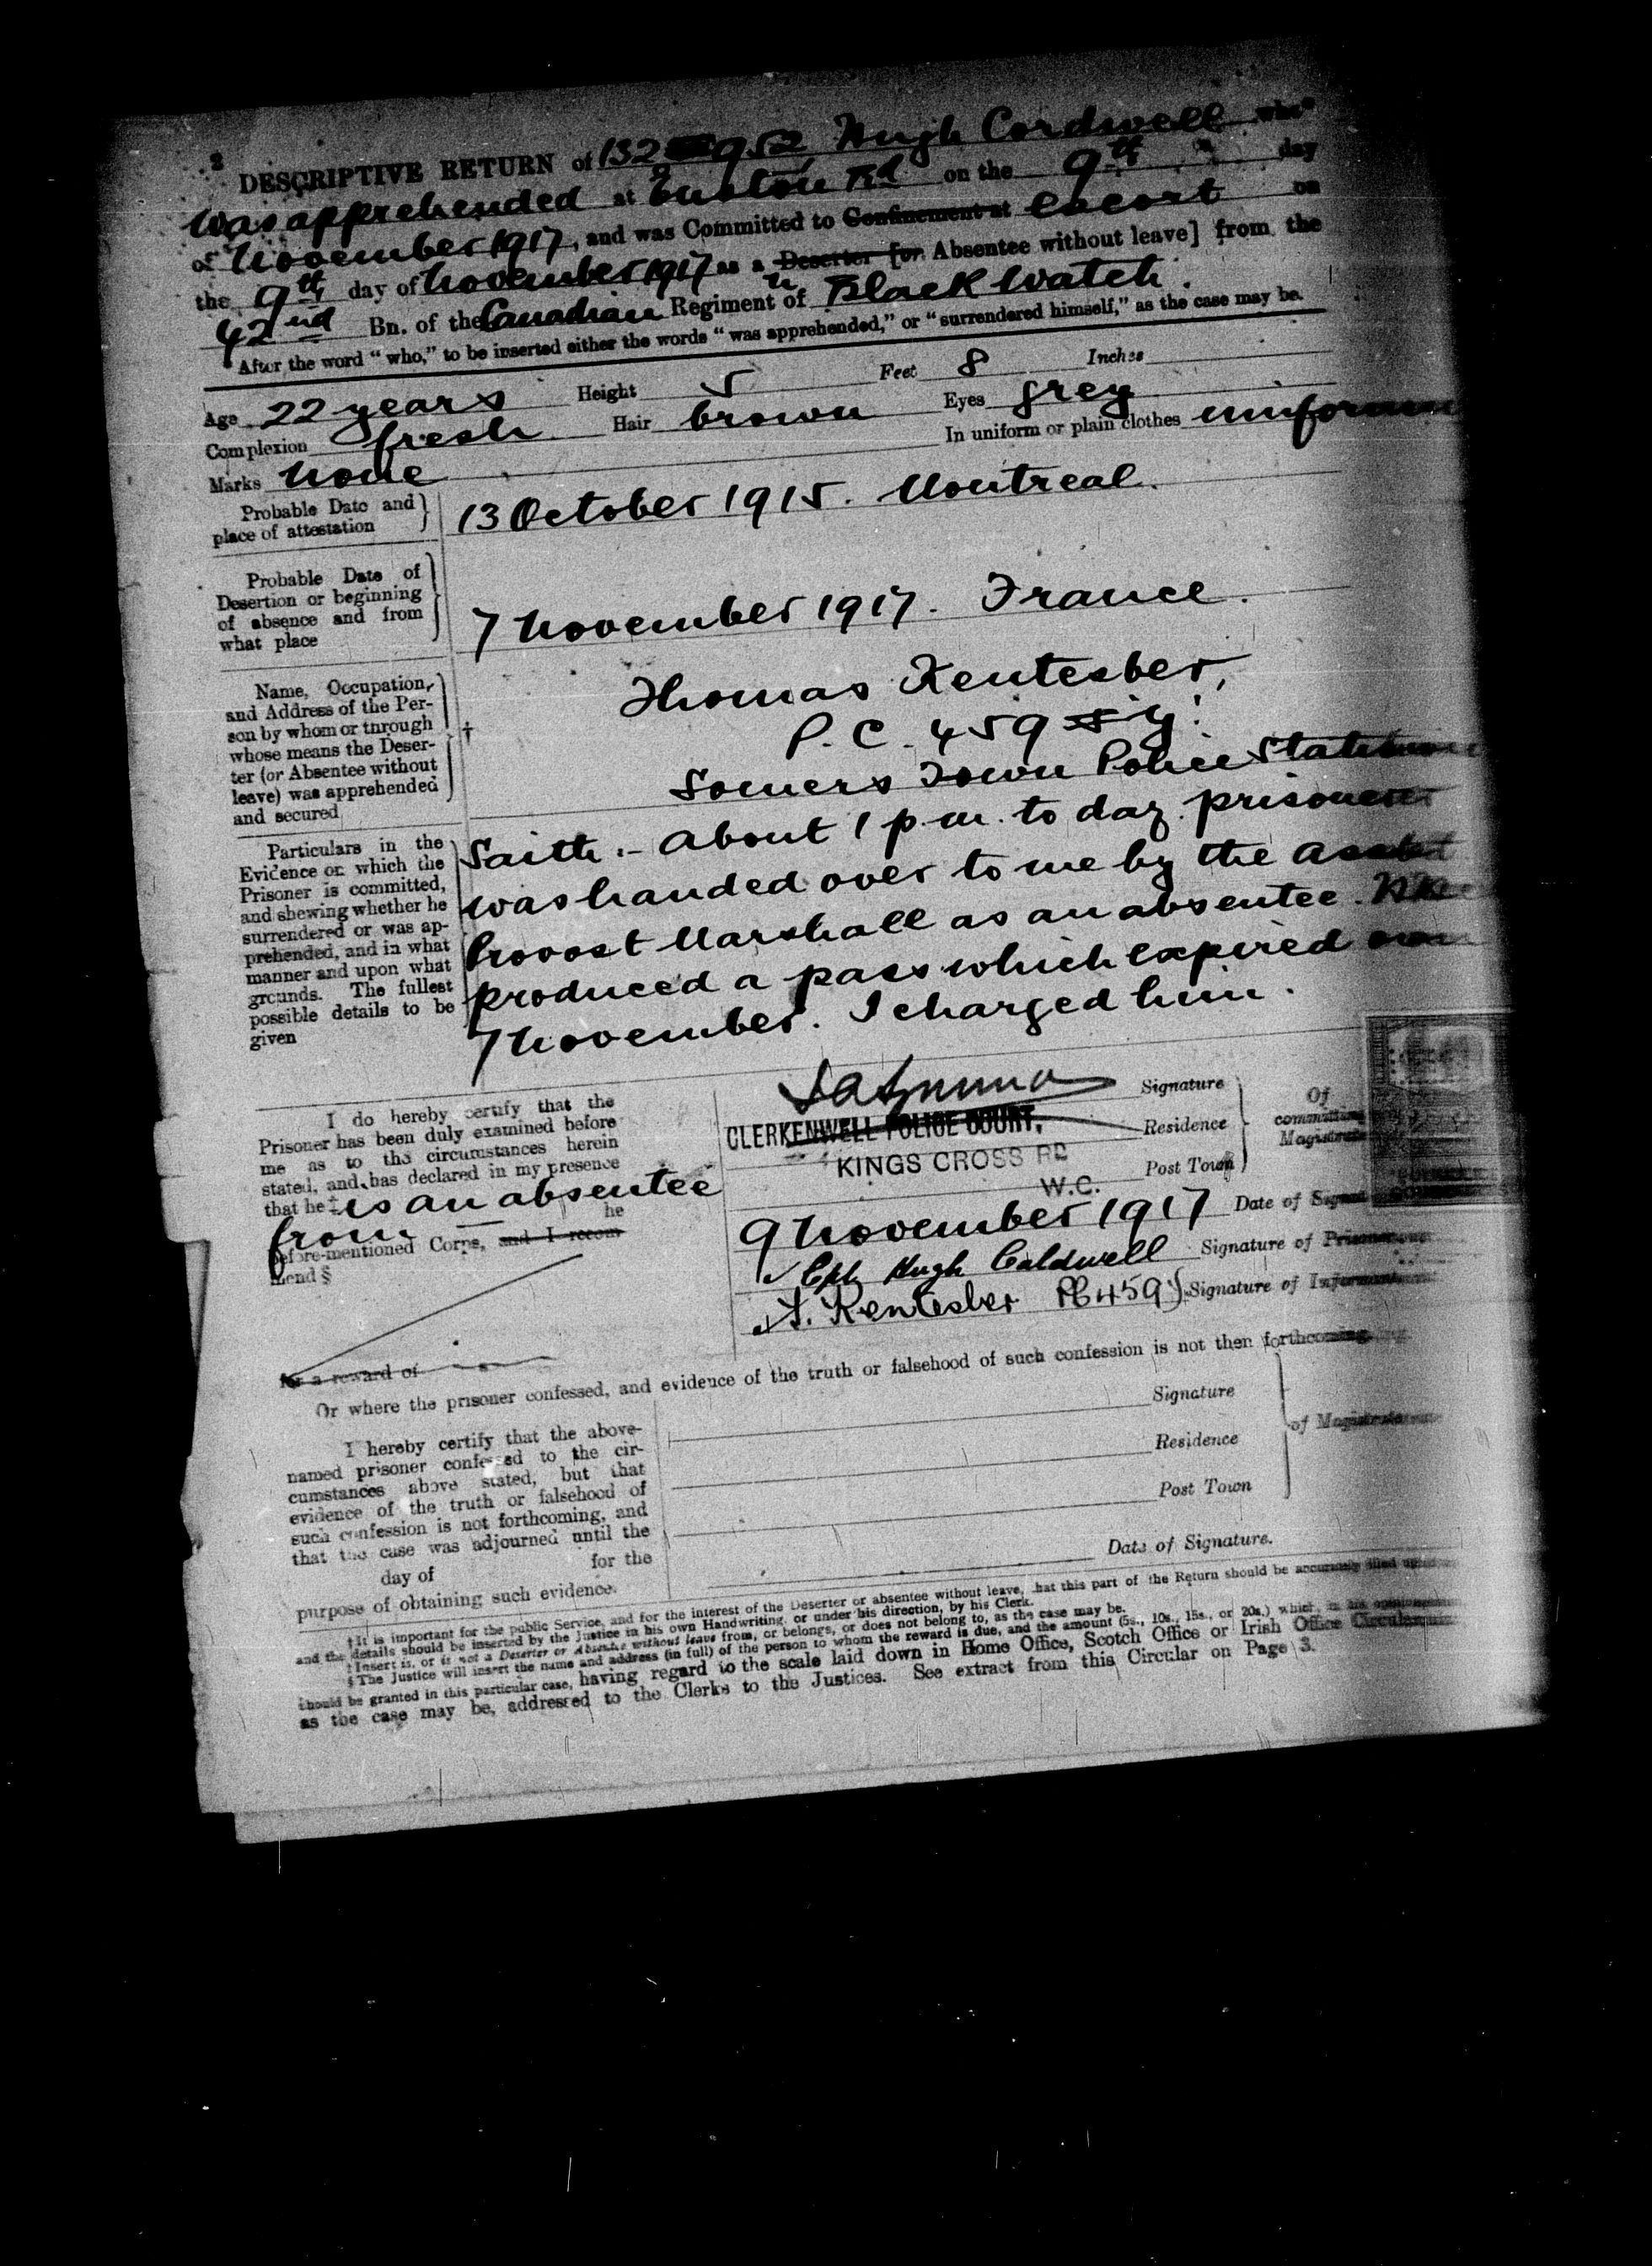 2
DESCRIPTIVE RETURN of 132 952 Hugh Cordwell who*
was apprehended at Euston Rd on the 9th day
of November 1917, and was Committed to Confinement at escort on
the 9th day of November 1917 as a Deserter [or Absentee without leave] from the
42nd Bn. of the Canadian Regiment of Black Watch.
* After the word "who," to be inserted either the words "was apprehended," or "surrendered himself," as the case may be.
Age 22 years Height 5 Feet 8 Inches
Complexion fresh Hair brown Eyes grey
Marks None In uniform or plain clothes uniform
Probable Date and
place of attestation
13 October 1915. Montreal.
Probable Date of
Desertion or beginning
of absence and from
what place
7 November 1917. France.
Name, Occupation,
and Address of the Per-
son by whom or through
whose means the Deser-
ter (or Absentee without
leave) was apprehended
and secured
†
Thomas Kentesber,
P.C. 459 Y.
Somers Town Police Station
Particulars in the
Evidence on which the
Prisoner is committed,
and shewing whether he
surrendered or was ap-
prehended, and in what
manner and upon what
grounds. The fullest
possible details to be
given
Saith:- About 1 p.m. to day prisoner
was handed over to me by the Asst
Provost Marshall as an absentee. He
produced a pass which expired on
7 November. I charged him.
I do hereby certify that the
Prisoner has been duly examined before
me as to the circumstances herein
stated, and has declared in my presence
that he ‡ is an absentee
from he
before-mentioned Corps, and I recom-
mend §
for a reward of
Signature
CLERKENWELL POLICE COURT, Residence
KINGS CROSS RD Post Town
W.C.
Of
committing
Magistrate
9 November 1917 Date of
Cpl Hugh Caldwell Signature of Prisoner
T. Kentesber PC 459 Y Signature of Informant
Or where the prisoner confessed, and evidence of the truth or falsehood of such confession is not then forthcoming.
I hereby certify that the above-
named prisoner confessed to the cir-
cumstances above stated, but that
evidence of the truth or falsehood of
such confession is not forthcoming, and
that the case was adjourned until the
day of for the
purpose of obtaining such evidence.
Signature
Residence
Post Town
of Magistrate
Date of Signature.
† It is important for the public Service, and for the interest of the Deserter or absentee without leave, that this part of the Return should be accurately filled up
and the details should be inserted by the Justice in his own Handwriting, or under his direction, by his Clerk.
‡ Insert is, or is not a Deserter or Absentee without leave from, or belongs, or does not belong to, as the case may be.
§ The Justice will insert the name and address (in full) of the person to whom the reward is due, and the amount (5s., 10s., 15s., or 20s.) which, in his opinion
should be granted in this particular case, having regard to the scale laid down in Home Office, Scotch Office or Irish Office Circular
as the case may be, addressed to the Clerks to the Justices. See extract from this Circular on Page 3.